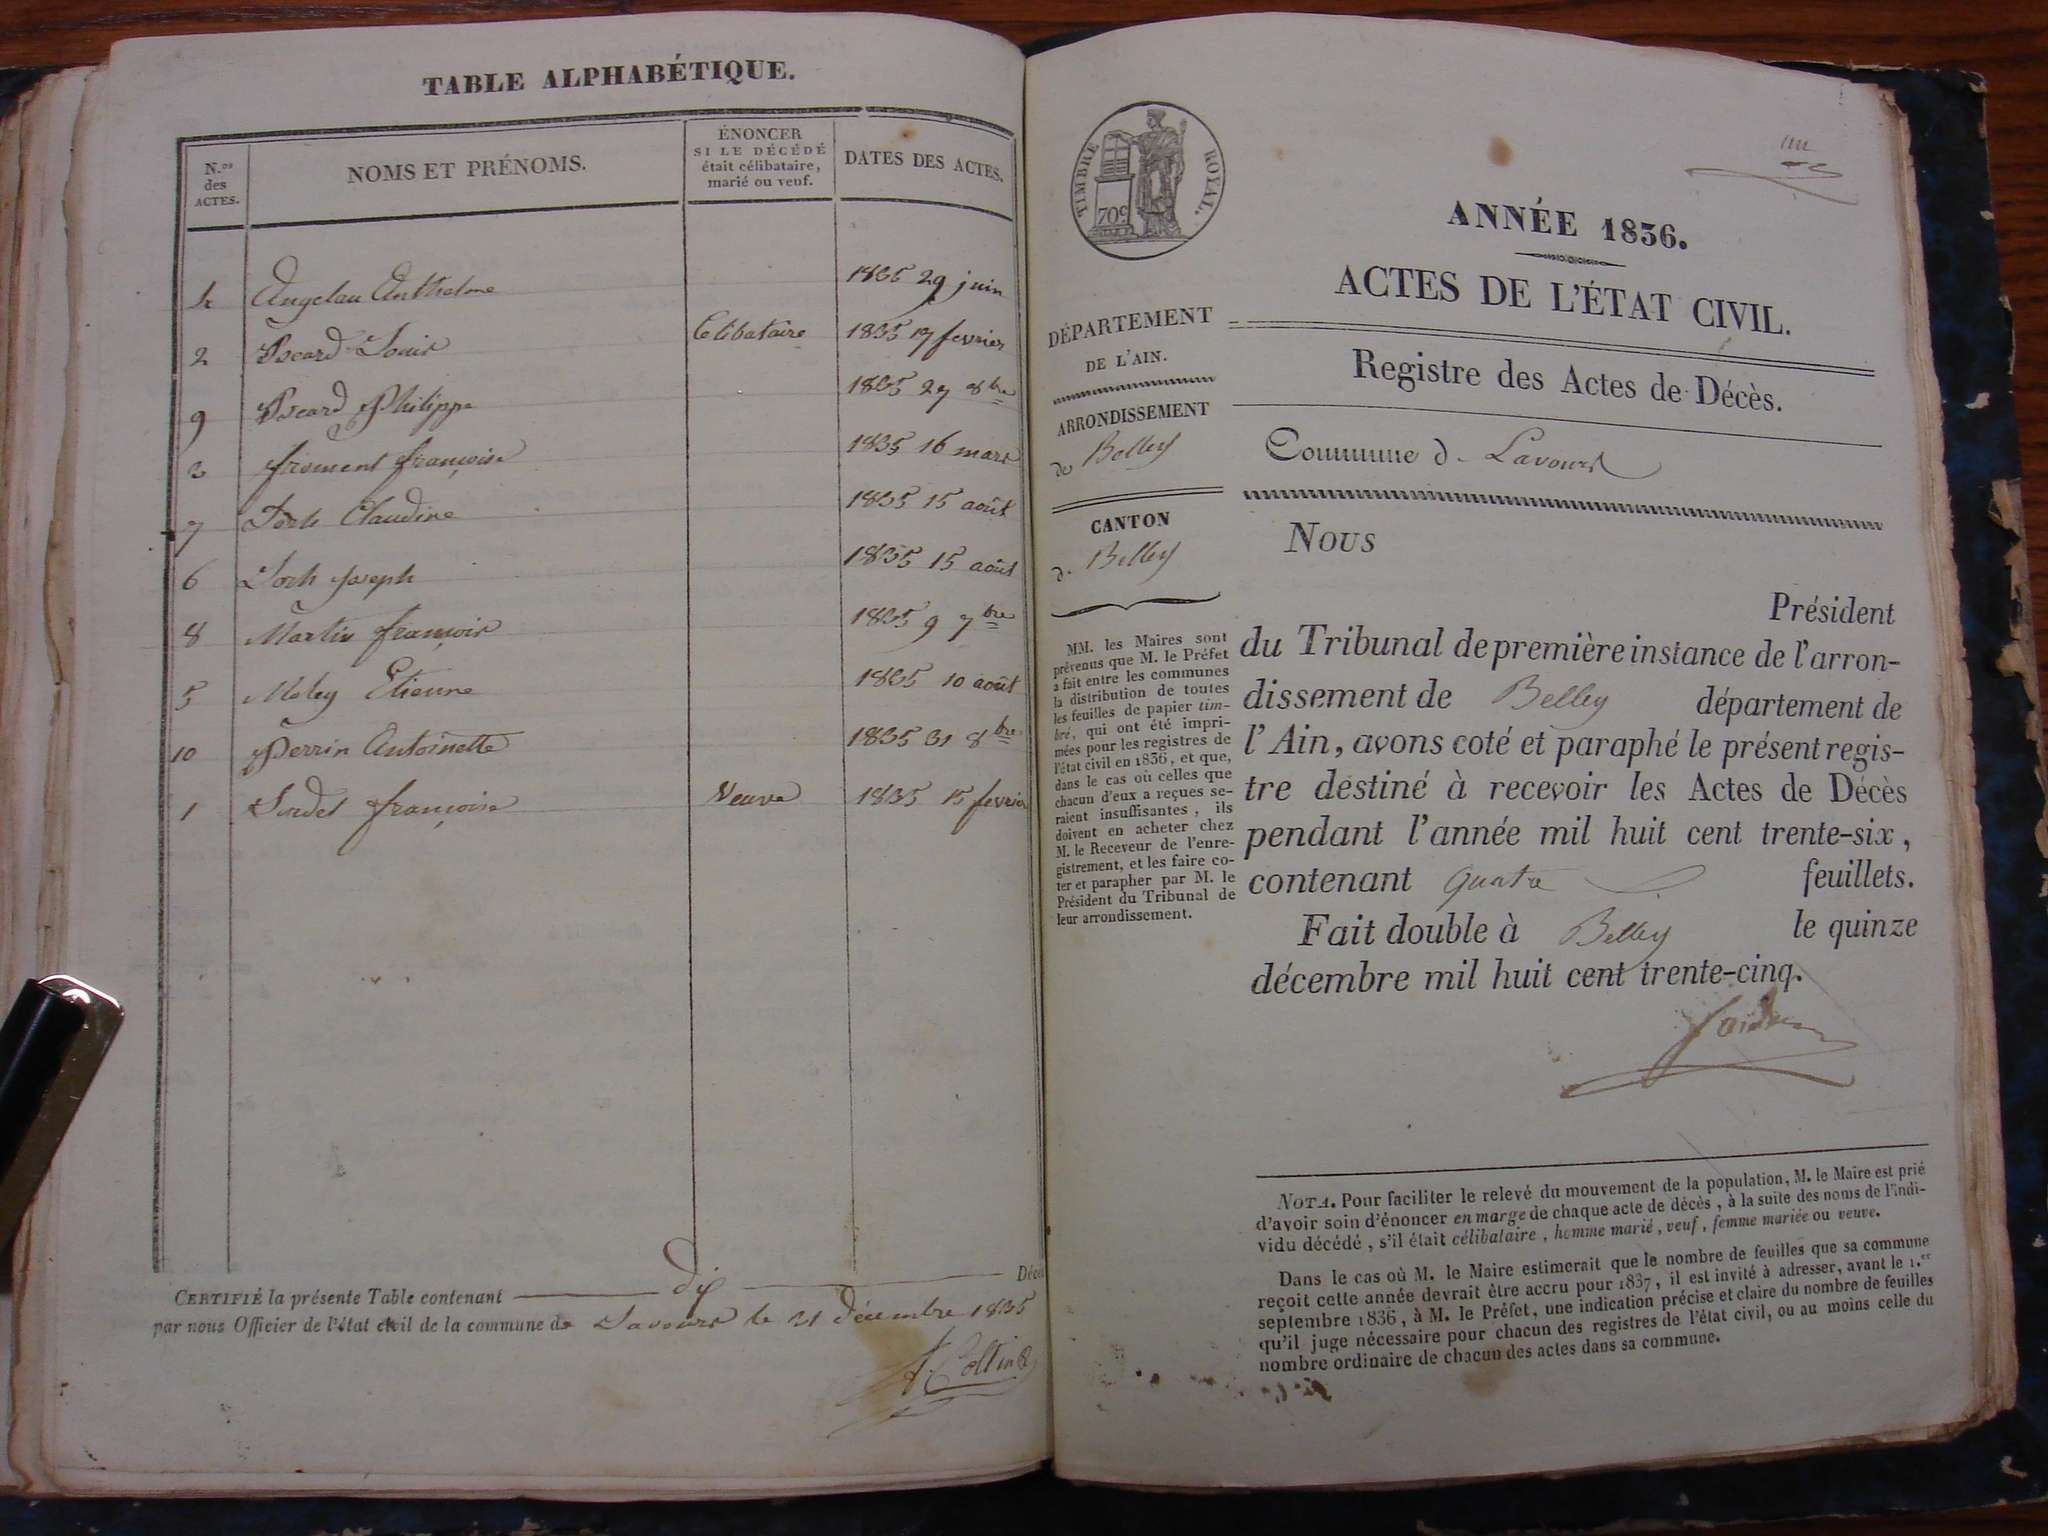 TABLE ALPHABÉTIQUE.
N.os des ACTES.
NOMS ET PRÉNOMS.
ÉNONCER SI LE DÉCÉDÉ était célibataire, marié ou veuf.
DATES DES ACTES.
4 Anthelme 1835 29 juin
2 Louis Celibataire 1835 17 fevrier
9 Philippe 1835 27 8bre
3 froment françoise 1835 16 mars
7 Claudine 1835 15 août
6 joseph 1835 15 août
8 Martin françois 1835 9 7bre
5 Etienne 1835 10 août
10 Perrin Antoinette 1835 31 8bre
1 françoise Veuve 1835 15 fevrier
CERTIFIÉ la présente Table contenant dix Décè
par nous Officier de l'état civil de la commune de Lavours le 31 décembre 1835
TIMBRE ROYAL.
70c
ANNÉE 1836.
ACTES DE L'ÉTAT CIVIL.
Registre des Actes de Décès.
Commune d. Lavours
DÉPARTEMENT
DE L'AIN.
ARRONDISSEMENT
de Belley
CANTON
d. Belley
MM. les Maires sont
prévenus que M. le Préfet
a fait entre les communes
la distribution de toutes
les feuilles de papier tim-
bré, qui ont été impri-
mées pour les registres de
l'état civil en 1836, et que,
dans le cas où celles que
chacun d'eux a reçues se-
raient insuffisantes, ils
doivent en acheter chez
M. le Receveur de l'enre-
gistrement, et les faire co-
ter et parapher par M. le
Président du Tribunal de
leur arrondissement.
NOUS
Président
du Tribunal de première instance de l'arron-
dissement de Belley département de
l'Ain, avons coté et paraphé le présent regis-
tre destiné à recevoir les Actes de Décès
pendant l'année mil huit cent trente-six,
contenant quatre feuillets.
Fait double à Belley le quinze
décembre mil huit cent trente-cinq.
NOTA. Pour faciliter le relevé du mouvement de la population, M. le Maire est prié
d'avoir soin d'énoncer en marge de chaque acte de décès, à la suite des noms de l'indi-
vidu décédé, s'il était célibataire, homme marié, veuf, femme mariée ou veuve.
Dans le cas où M. le Maire estimerait que le nombre de feuilles que sa commune
reçoit cette année devrait être accru pour 1837, il est invité à adresser, avant le 1.er
septembre 1836, à M. le Préfet, une indication précise et claire du nombre de feuilles
qu'il juge nécessaire pour chacun des registres de l'état civil, ou au moins celle du
nombre ordinaire de chacun des actes dans sa commune.